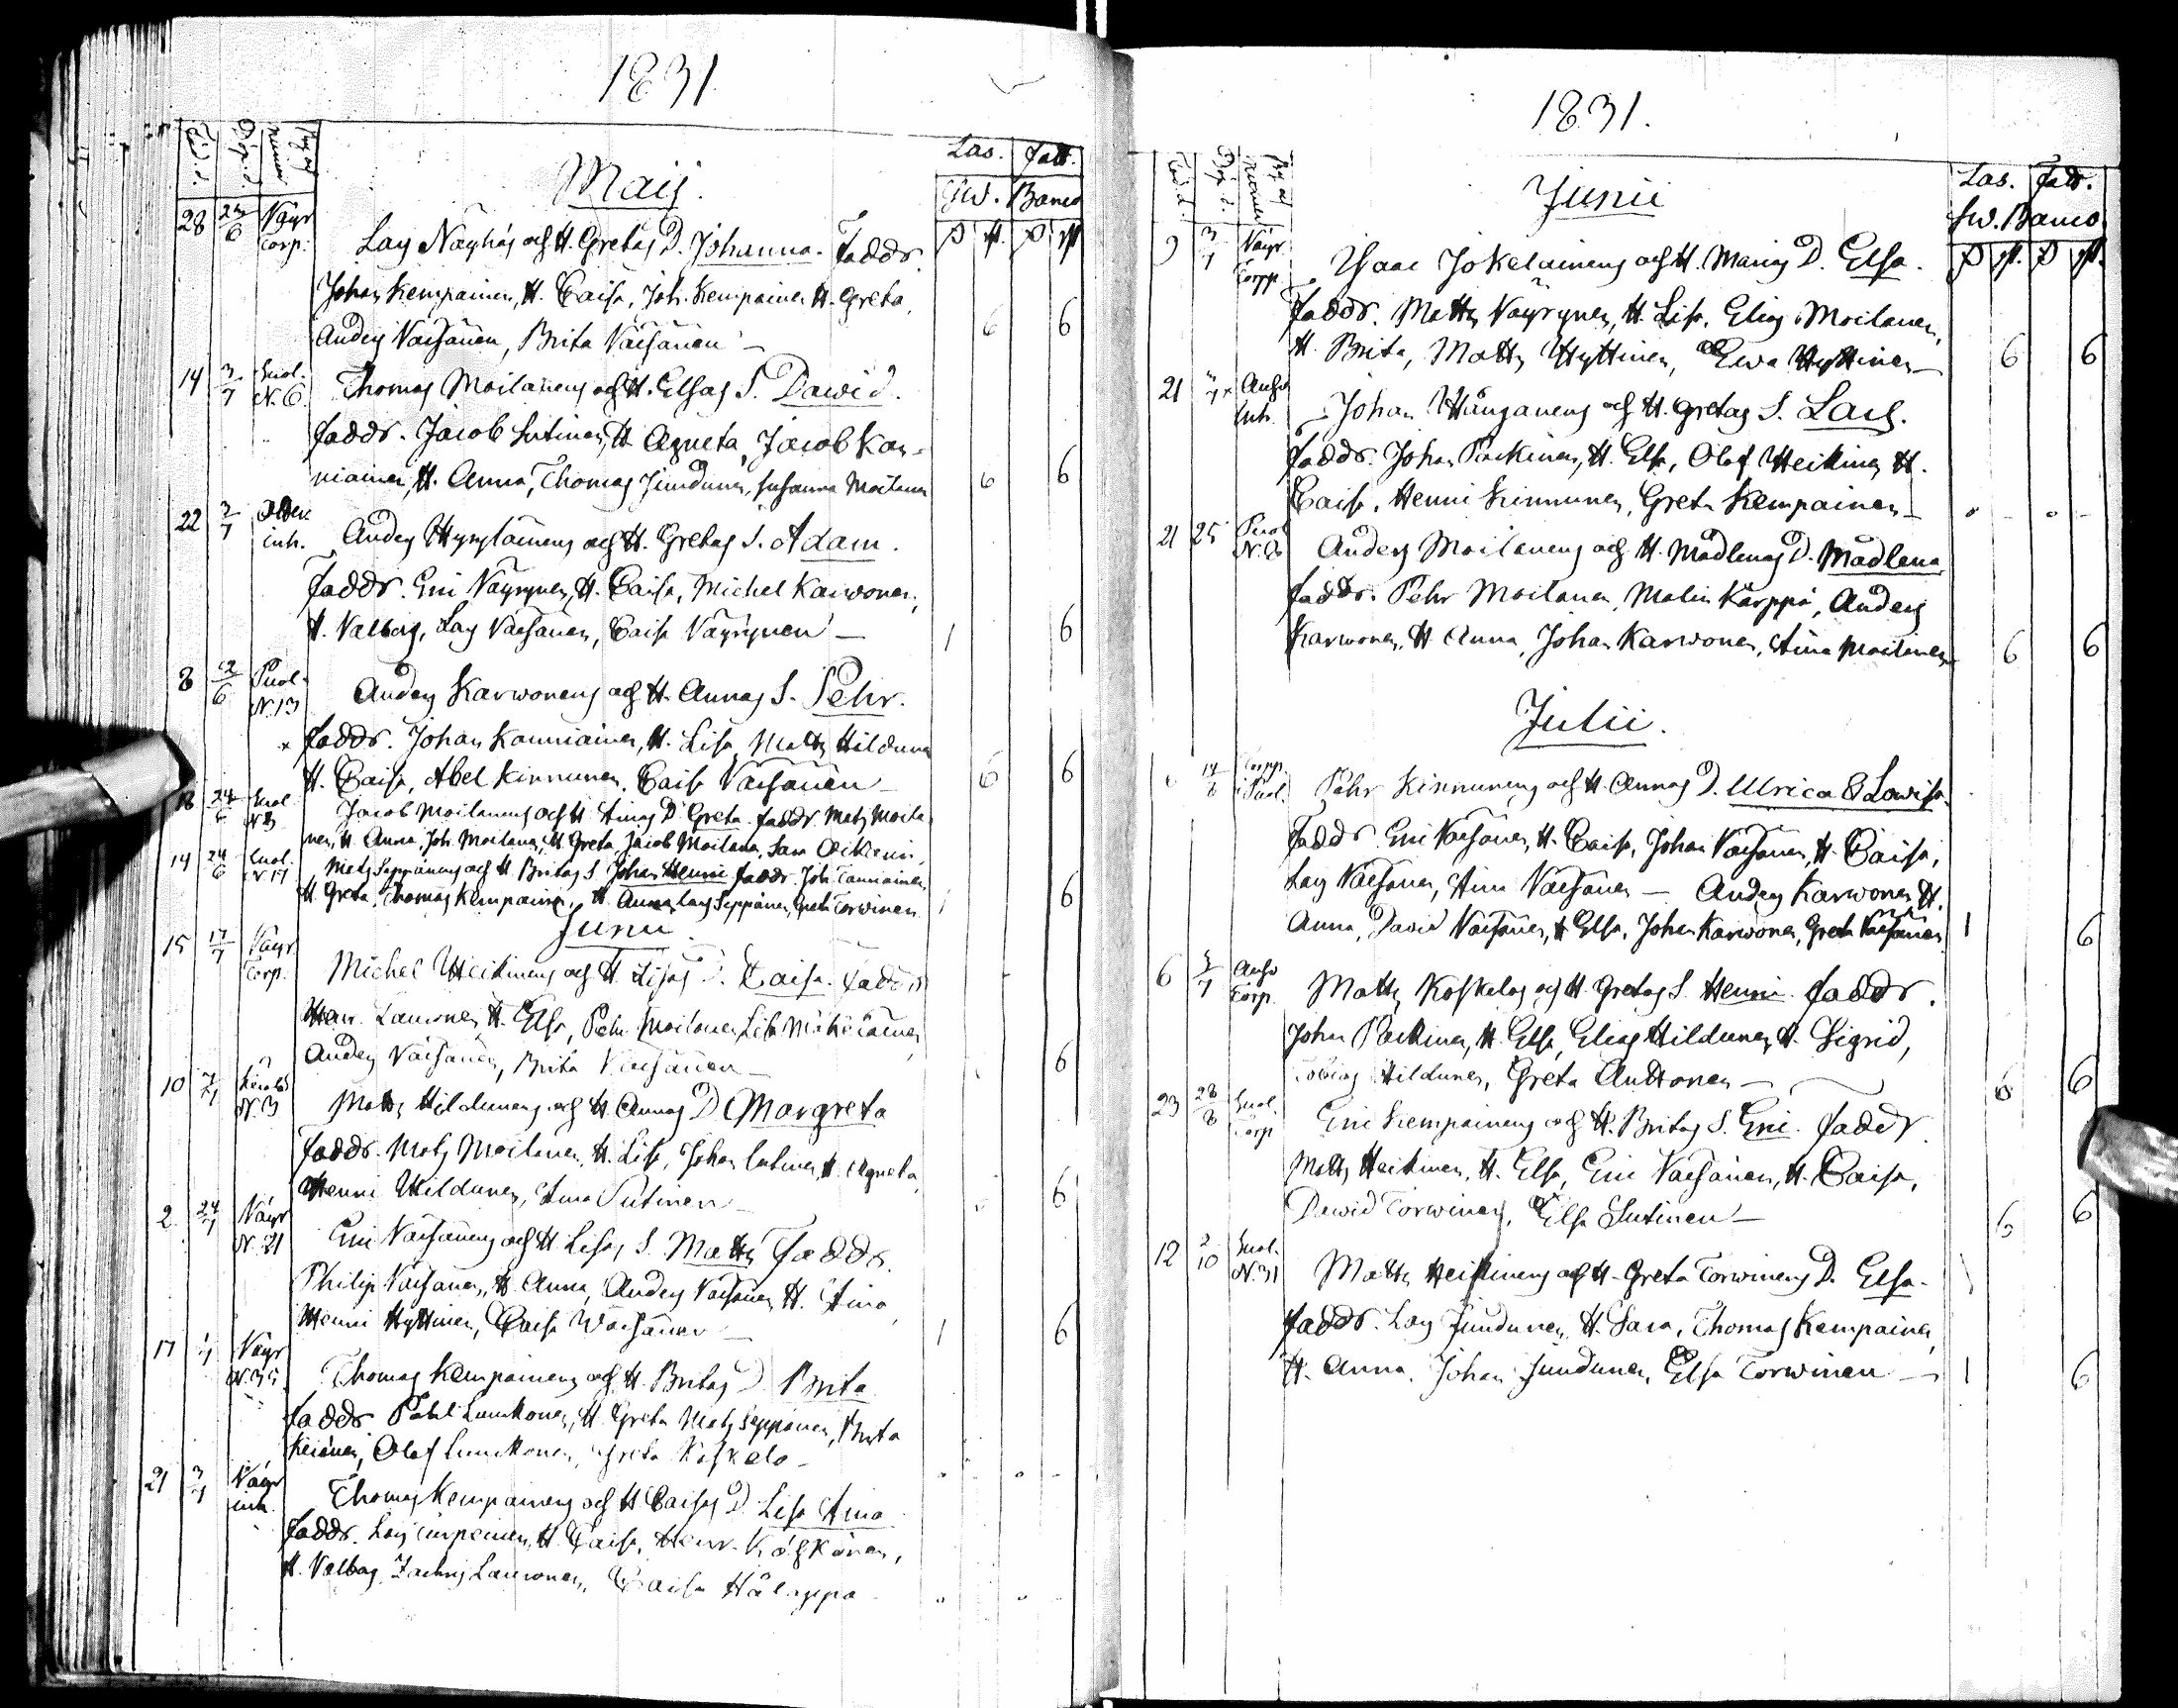 1831
Föd. d. Döp. d. By och Numer Maij. Las. Fatt.
Sw. Banco
28 24/6 Näyr Torp. Lars Näyhäs och H. Gretas D. Johanna. Faddr.
Johan Kempainen, H. Caisa, Joh. Kempainen H. Greta,
Anders Väisänen, Brita Väisänen — 6 6
14 3/7 Suol. N. 6. Thomas Moilanens och H. Elsas S. Dawid.
Faddr. Jacob Sutinen, H. Agneta, Jacob Kan-
niainen, H. Anna, Thomas Jundunen, Susanna Moilanen 6 6
22 3/7 inh. Anders Hyryläinens och H. Gretas S. Adam.
Faddr. Eric Näyrynen, H. Caisa, Michel Karwonen,
H. Valborg, Lars Väisänen, Caisa Väyrynen — 1 6
8 12/6 Puol. N. 13 Anders Karwonens och H. Annas S. Pehr.
Faddr. Johan Kanniainen, H. Lisa, Matts Hildunen
H. Caisa, Abel Kinnunen, Caisa Väisänen — 6 6
18 24/6 Suol N. 3 Jacob Moilanens och H. Ainas D. Greta. Faddr. Mats Moila-
nen, H. Anna, Joh. Moilanen, H. Greta, Jacob Moilanen, Sara
14 24/6 Suol. N. 17 Mats Seppänens och H. Britas S. Johan Henric Faddr. Joh. Tanniainen,
H. Greta, Thomas Kempainen, H. Anna, Lars Seppänen, Greta Torwinen 1 6
Junii
15 17/7 Näyr. Torp. Michel Heikinens och H. Lisas D. Caisa. Faddr.
Henr. Lauronen, H. Elsa, Pehr Moilanen, Lisa Mikkilainen,
Anders Väisänen, Brita Väisänen — 6
10 N. 3 Matts Hildunens och H. Annas D. Margreta
Faddr. Mats Moilanen, H. Lisa, Johan Sutinen, H. Agneta,
Henric Hildunen, Aina Sutinen — 6
2 24/7 Näyr N. 21 Eric Väisänens och H. Lisas S. Matts Faddr.
Philip Väisänen, H. Anna, Anders Väisänen, H. Aina,
Henric Hyttinen, Caisa Wäisänen — 1 6
17 Näyr Thomas Kempainens och H. Britas D. Brita
Faddr. Påhl Luukkonen, H. Greta, Mats Seppänen, Brita
Keränen, Olof Luukkonen, Greta Koskelo —
21 3/7 Näyr inh. Thomas Kempainens och H. Caisas D. Lisa Aina
Faddr. Lars Timpeinen, H. Caisa, Henr.
H. Valborg, Zachris Lauronen, Caisa Hälappa
1831.
Föd. d. Döp. d. By och Numer Junii Las. Fadr.
Sw. Banco
9 3/7 Näyr Torpp Isaac Jokelainens och H. Marias D. Elsa.
Faddr. Matts Näyrynen, H. Lisa, Elias Moilanen,
H. Brita, Matts Hyttinen, Ewa Hyttinen — 6 6
21 Inh. Johan Hängänens och H. Gretas S. Lars.
Faddr. Johan Parkinen, H. Elsa, Olof Heikinen, H.
Caisa, Henric Kinnunen, Greta Kempainen —
21 25 Puol Anders Moilanens och H. Madlenas D. Madlena
Faddr. Pehr Moilanen, Malin Karppa, Anders
Karwonen, H. Anna, Johan Karwonen, Aina Moilanen 6 6
Julii.
14/8 Torpp. i Puol. Pehr Kinnunens och H. Annas D. Ulrica Lowisa.
Faddr. Eric Väisänen, H. Caisa, Johan Väisänen, H. Caisa,
Lars Väisänen, Aina Väisänen — Anders Karwonen, H.
Anna, David Väisänen, H. Elsa, Johan Karwonen, Greta Väisänen 1 6
6 3/7 Torp. Matts Koskelos och H. Gretas S. Henric. Faddr.
Johan Parkinen, H. Elsa, Elias Hildunen, H. Sigrid,
Tobias Hildunen, Greta Anttonen — 6 6
23 28/8 Suol. Torp Eric Kempainens och H. Britas S. Eric. Faddr.
Matts Heikinen, H. Elsa, Eric Väisänen, H. Caisa,
Dawid Torwinen, Elsa Sutinen — 6 6
12 2/10 Suol. N. 31 Matts Heikinens och H. Greta Torwinens D. Elsa.
Faddr. Lars Jundunen, H. Sara, Thomas Kempainen,
H. Anna, Johan Jundunen, Elsa Torwinen — 1 6